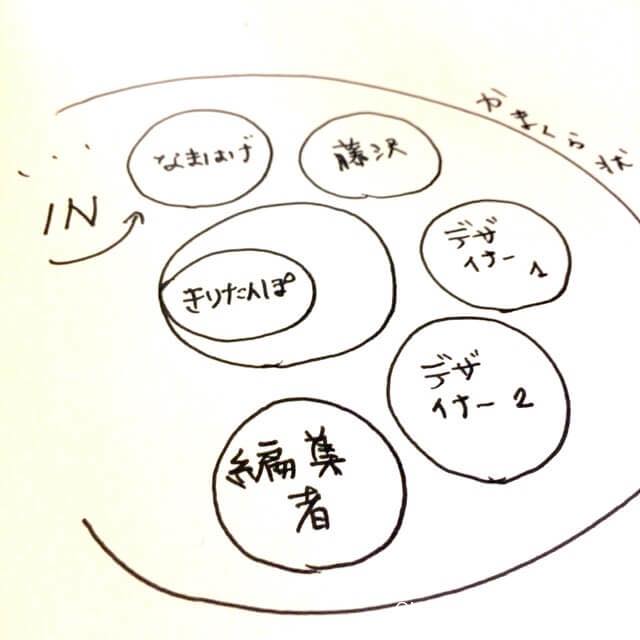 かまくら状
なまはげ
藤沢
IN
デザ
イナー 1
きりたんぽ
デザ
イナー 2
編集
者